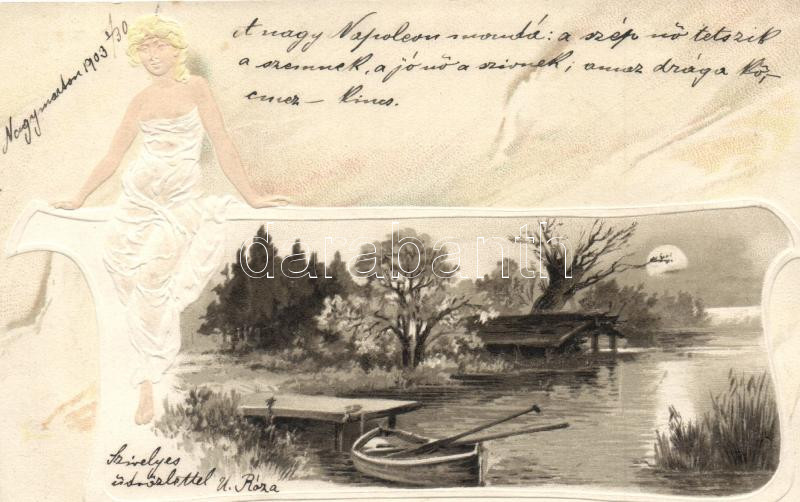 Nagymaroson 1903 1/30
A nagy Napoleon mondá: a szép nő tetszik
a szemnek, a jó nő a szivnek; amaz drága kő,
emez – kincs.
darabanth
Szivelyes
üdvözlettel U. Róza